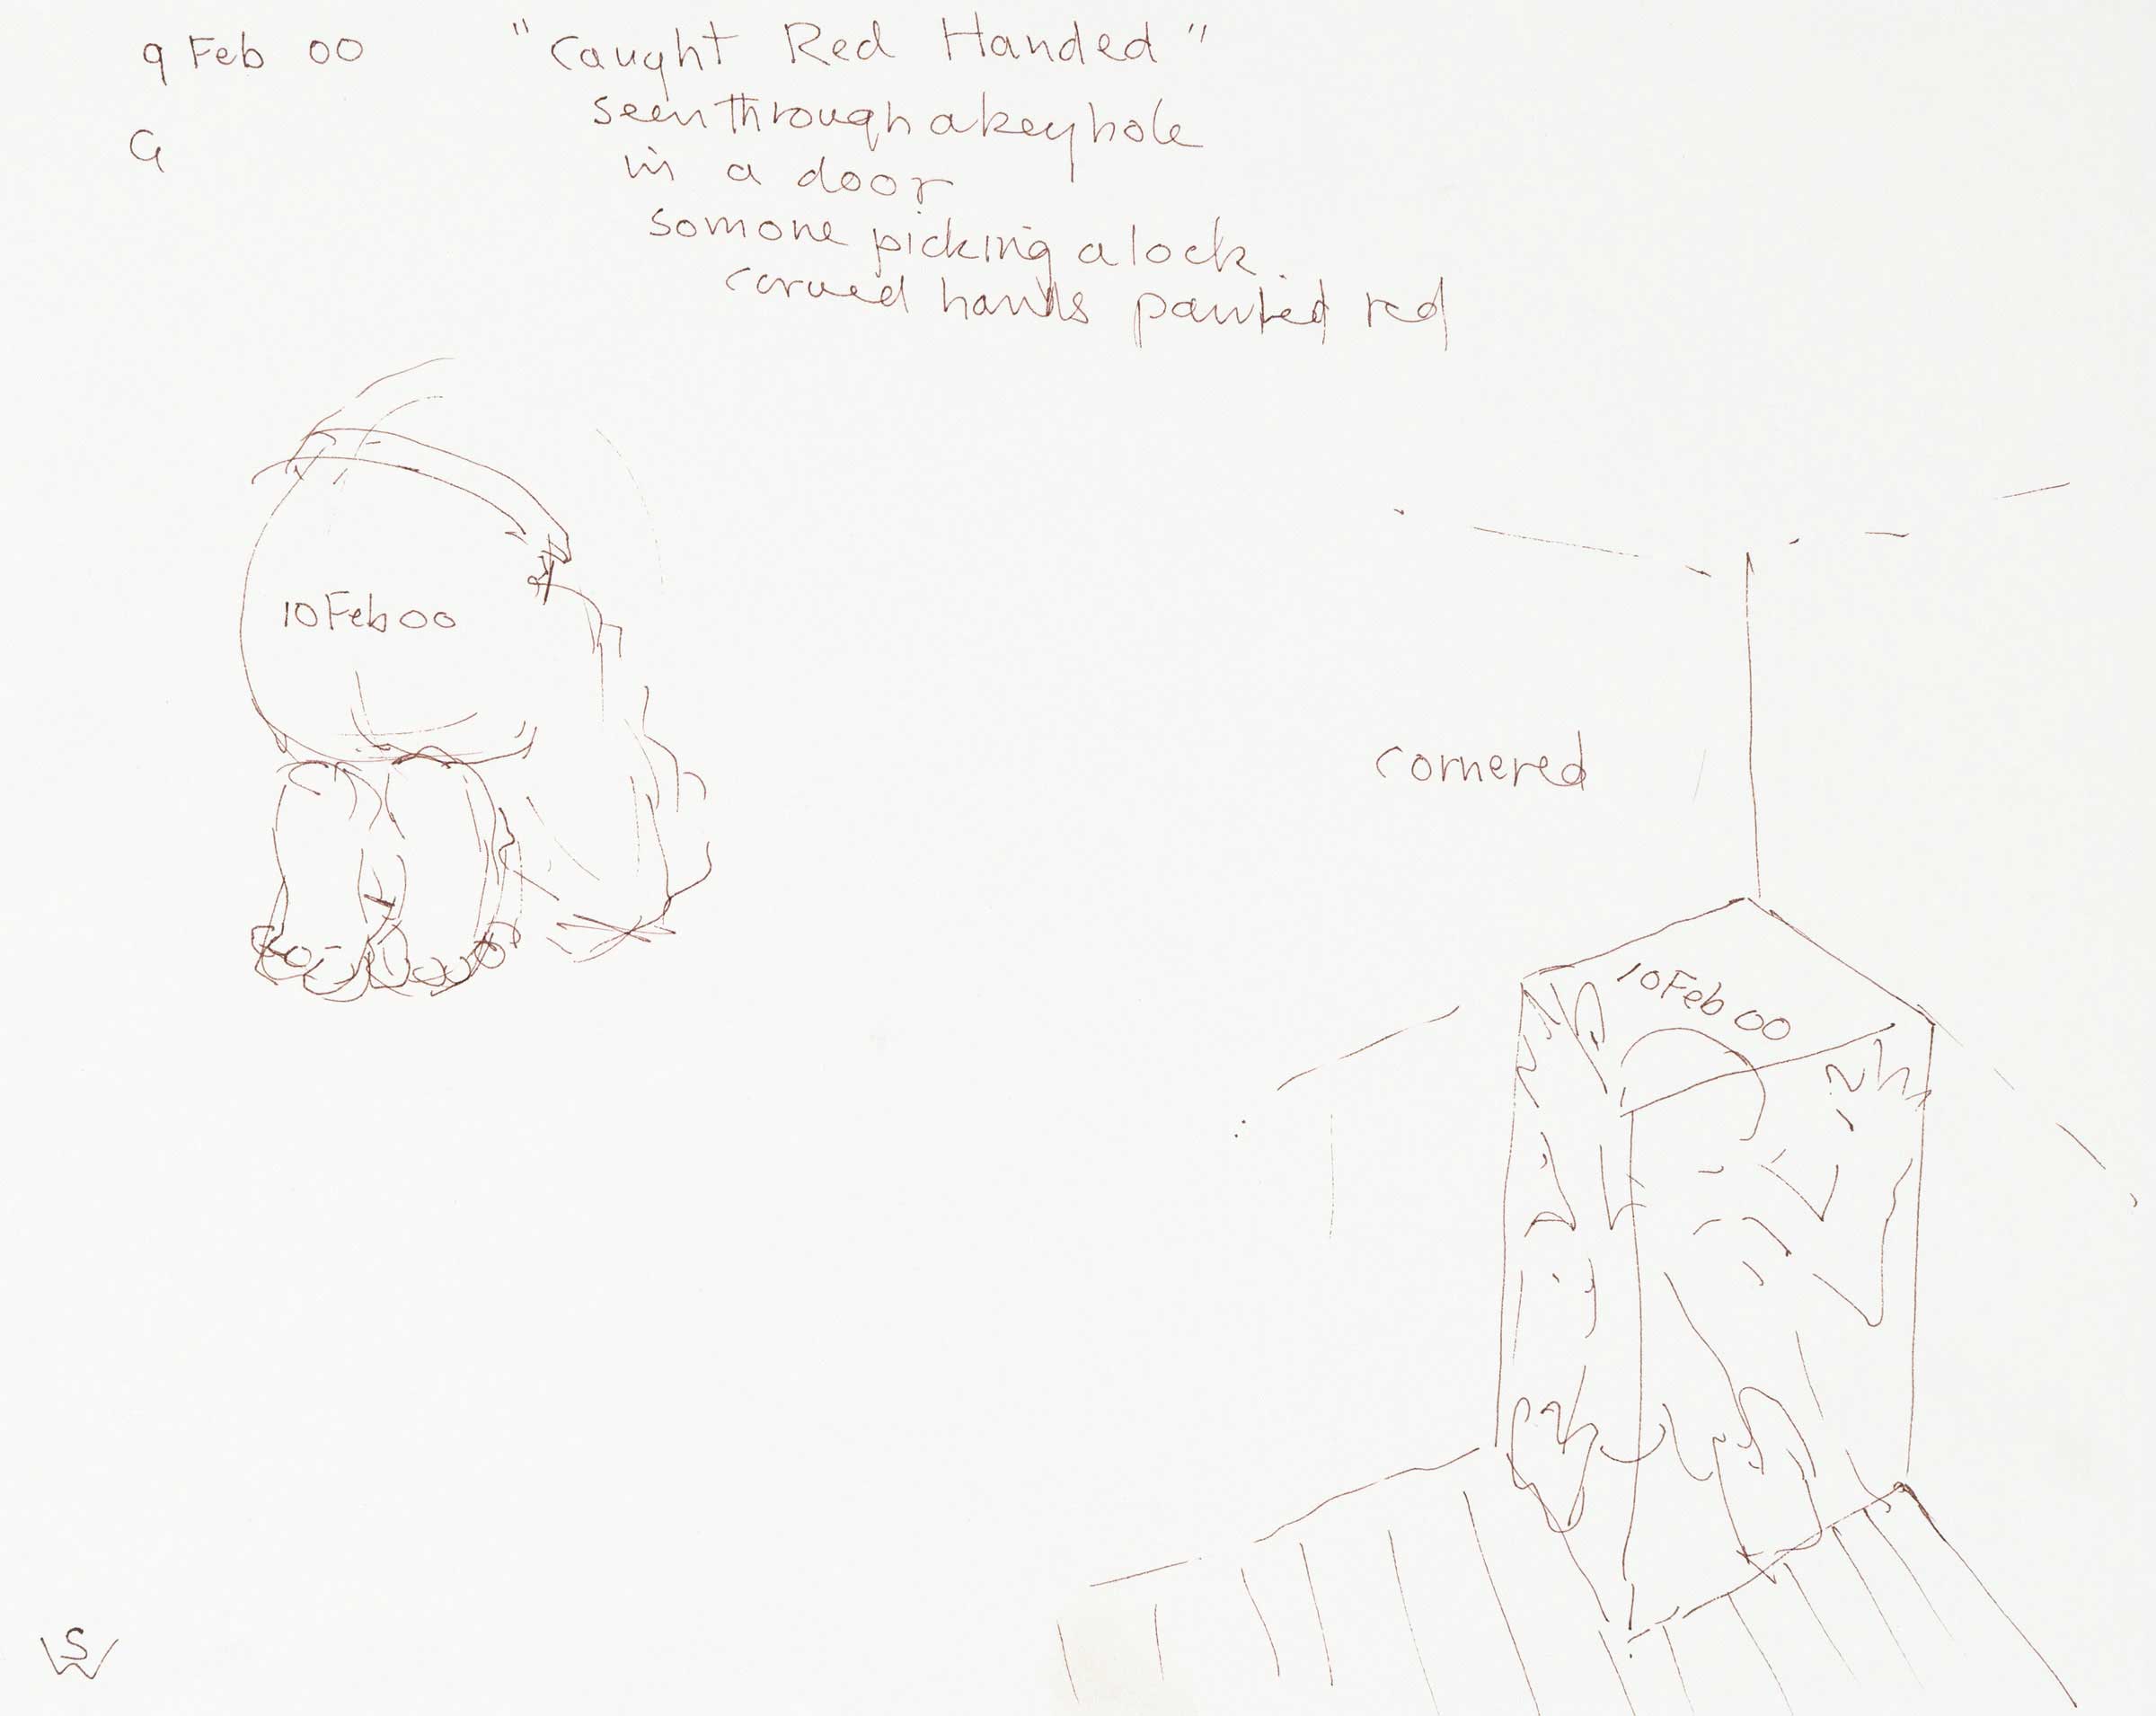 9 Feb 00
"Caught Red Handed"
G
seen through a keyhole
in a door
somone picking a lock.
carved hands painted red
10 Feb 00
cornered
10 Feb 00
SW